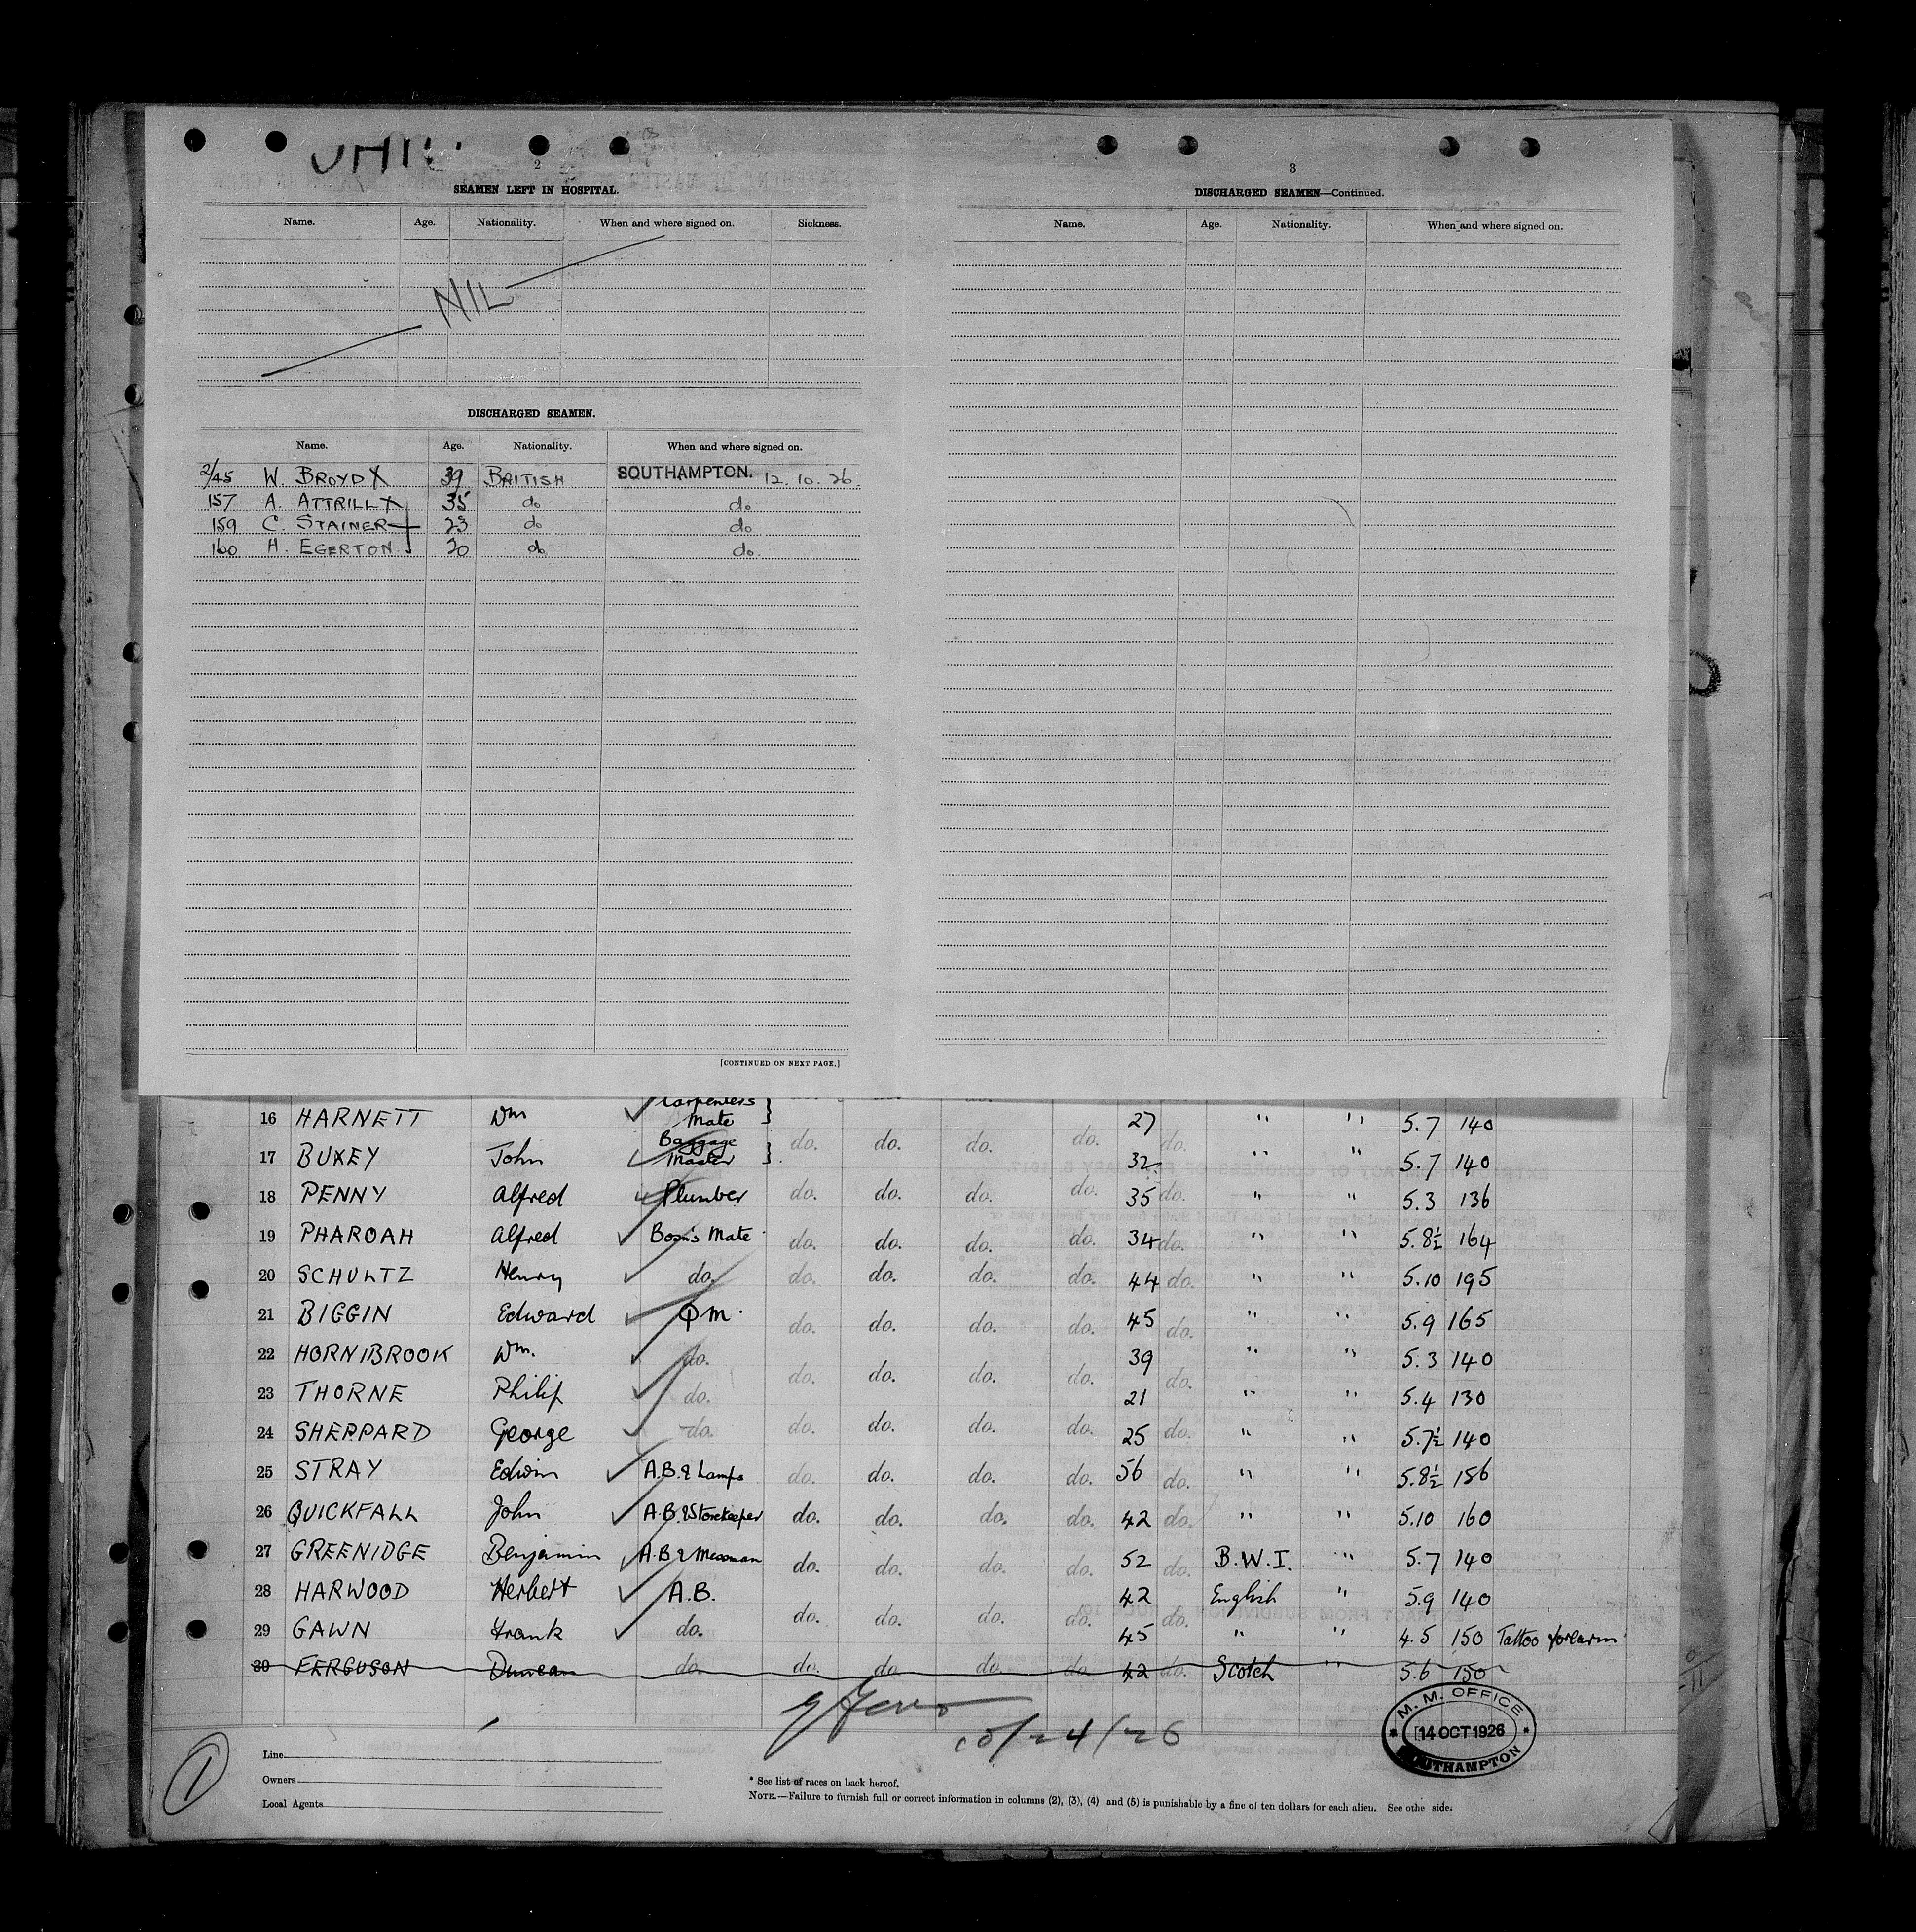 2
SEAMEN LEFT IN HOSPITAL.
Name. Age. Nationality. When and where signed on. Sickness.
NIL
DISCHARGED SEAMEN.
Name. Age. Nationality. When and where signed on.
2/45 W. BROYD X 39 BRITISH SOUTHAMPTON. 12.10.26.
157 A. ATTRILL X 35 do do.
159 C. STAINER 23 do do.
160 H. EGERTON 20 do do.
[CONTINUED ON NEXT PAGE.]
3
DISCHARGED SEAMEN—Continued.
Name. Age. Nationality. When and where signed on.
16 HARNETT Wm Carpenters Mate 27 " " 5.7 140
17 BUXEY John Baggage Master do. do. do. do. 32 do. " " 5.7 140
18 PENNY Alfred Plumber do. do. do. do. 35 do. " " 5.3 136
19 PHAROAH Alfred Bosn's Mate do. do. do. do. 34 do. " " 5.8½ 164
20 SCHULTZ Henry do. do. do. do. do. 44 do. " " 5.10 195
21 BIGGIN Edward Q M. do. do. do. do. 45 do. " " 5.9 165
22 HORNIBROOK Wm. do. 39 " " 5.3 140
23 THORNE Philip do. do. do. do. do. 21 do. " " 5.4 130
24 SHEPPARD George do. do. do. do. do. 25 do. " " 5.7½ 140
25 STRAY Edwin A.B. & Lamps do. do. do. do. 56 do. " " 5.8½ 156
26 QUICKFALL John A.B. & Storekeeper do. do. do. do. 42 do. " " 5.10 160
27 GREENIDGE Benjamin A.B & Messman do. do. do. do. 52 do. B.W.I. " 5.7 140
28 HARWOOD Herbert A.B. 42 English " 5.9 140
29 GAWN Frank do. do. do. do. do. 45 do. " " 4.5 150 Tattoo forearm
30 FERGUSON Duncan do. do. do. do. do. 42 do. Scotch " 5.6 150
10/24/26
M. M. OFFICE
14 OCT 1926
SOUTHAMPTON
1
Line
Owners
Local Agents
* See list of races on back hereof.
NOTE.—Failure to furnish full or correct information in columns (2), (3), (4) and (5) is punishable by a fine of ten dollars for each alien. See othe side.